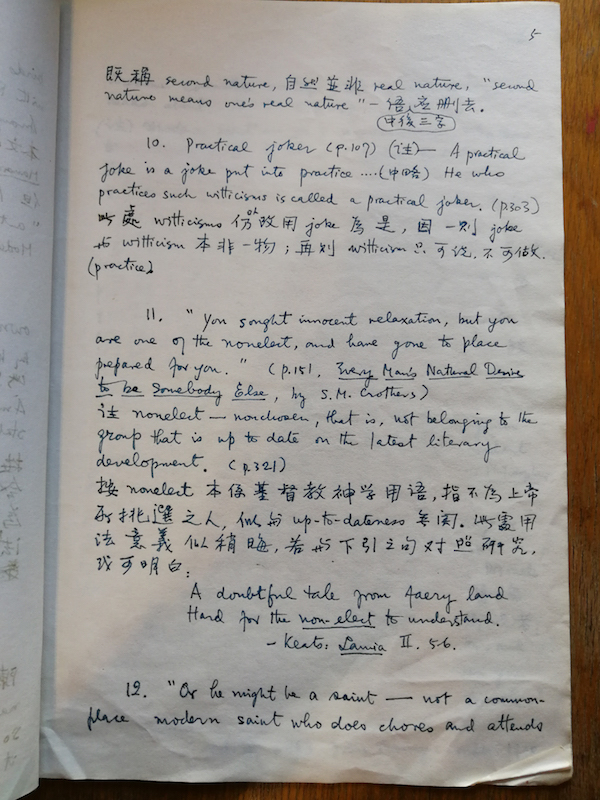 5
既稱 second nature, 自然並非 real nature, "second
nature means one's real nature" 一語應刪去.
中後三字
10. Practical joker (p.107) (注) — A practical
joke is a joke put into practice ....(中略) He who
practices such witticisms is called a practical joker. (p.303)
此處 witticisms 仍以改用 joke 為是, 因一則 joke
与 witticism 本非一物; 再則 witticism 只可说, 不可做.
(practice)
11. "You sought innocent relaxation, but you
are one of the nonelect, and have gone to place
prepared for you." (p.151, Every Man's Natural Desire
to be Somebody Else, by S.M. Crothers)
注 nonelect — nonchosen, that is, not belonging to the
group that is up to date on the latest literary
development. (p.321)
按 nonelect 本係基督教神学用语, 指不為上帝
所挑選之人, 似与 up-to-dateness 無関. 此處用
法意義似稍晦, 若与下引之句对照研究,
或可明白:
A doubtful tale from faery land
Hard for the non-elect to understand.
— Keats: Lamia II. 5-6.
12. "Or he might be a saint — not a common-
place modern saint who does chores and attends